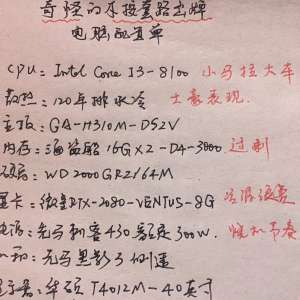 奇怪的不按套路出牌
电脑配置单
CPU: Intel Core I3-8100 小马拉大车
散热: 120年排水冷 土豪表现
主板: GA-H310M-DS2V
内存: 海盗船 16G×2-D4-3000 过剩
硬盘: WD 2000GR2/64M
显卡: 微星RTX-2080-VENTUS-8G
电源: 先马刺客430额定300W.
机箱: 先马黑影3侧透
显示器: T4012M-40英寸